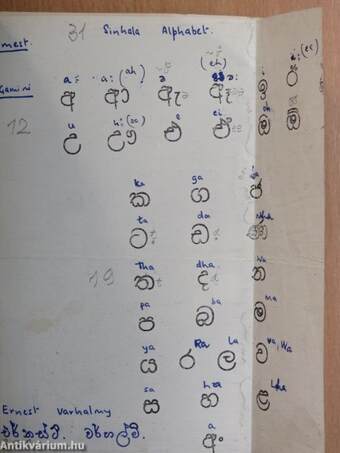 31 Sinhala Alphabet.
a: a:(ah) ə (eh) ə: i i:(ee)
Gamini අ ආ ඇ ඈ ඉ ඊ
u u:(oo) e ei
12 උ ඌ එ ඒ ඔ ඕ
ka ga
ක ග ජ
ta da Nha
ට ඩ
Tha dha Na
19 ත ද න
pa ba ma
ප බ ම
ya Ra La va, Wa
ය ර ල ව
sa ha Lha
ස හ ළ
a
අං
Ernest Varhalmy
Antikvárium.hu